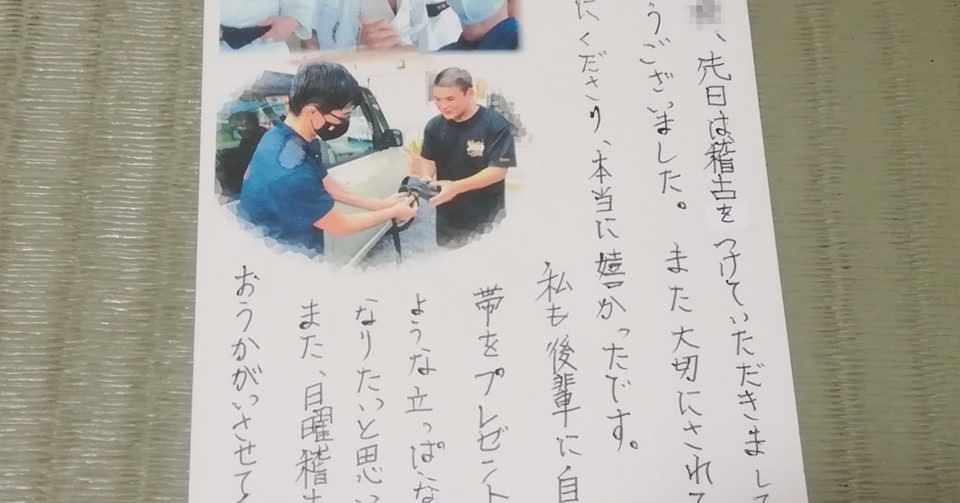 、先日は稽古をつけていただきまして
うございました。また大切にされて
ださり、本当に嬉かったです。
私も後輩に自
帯をプレゼント
ような立っぱな
なりたいと思い
また、日曜稽古
おうかがいさせて